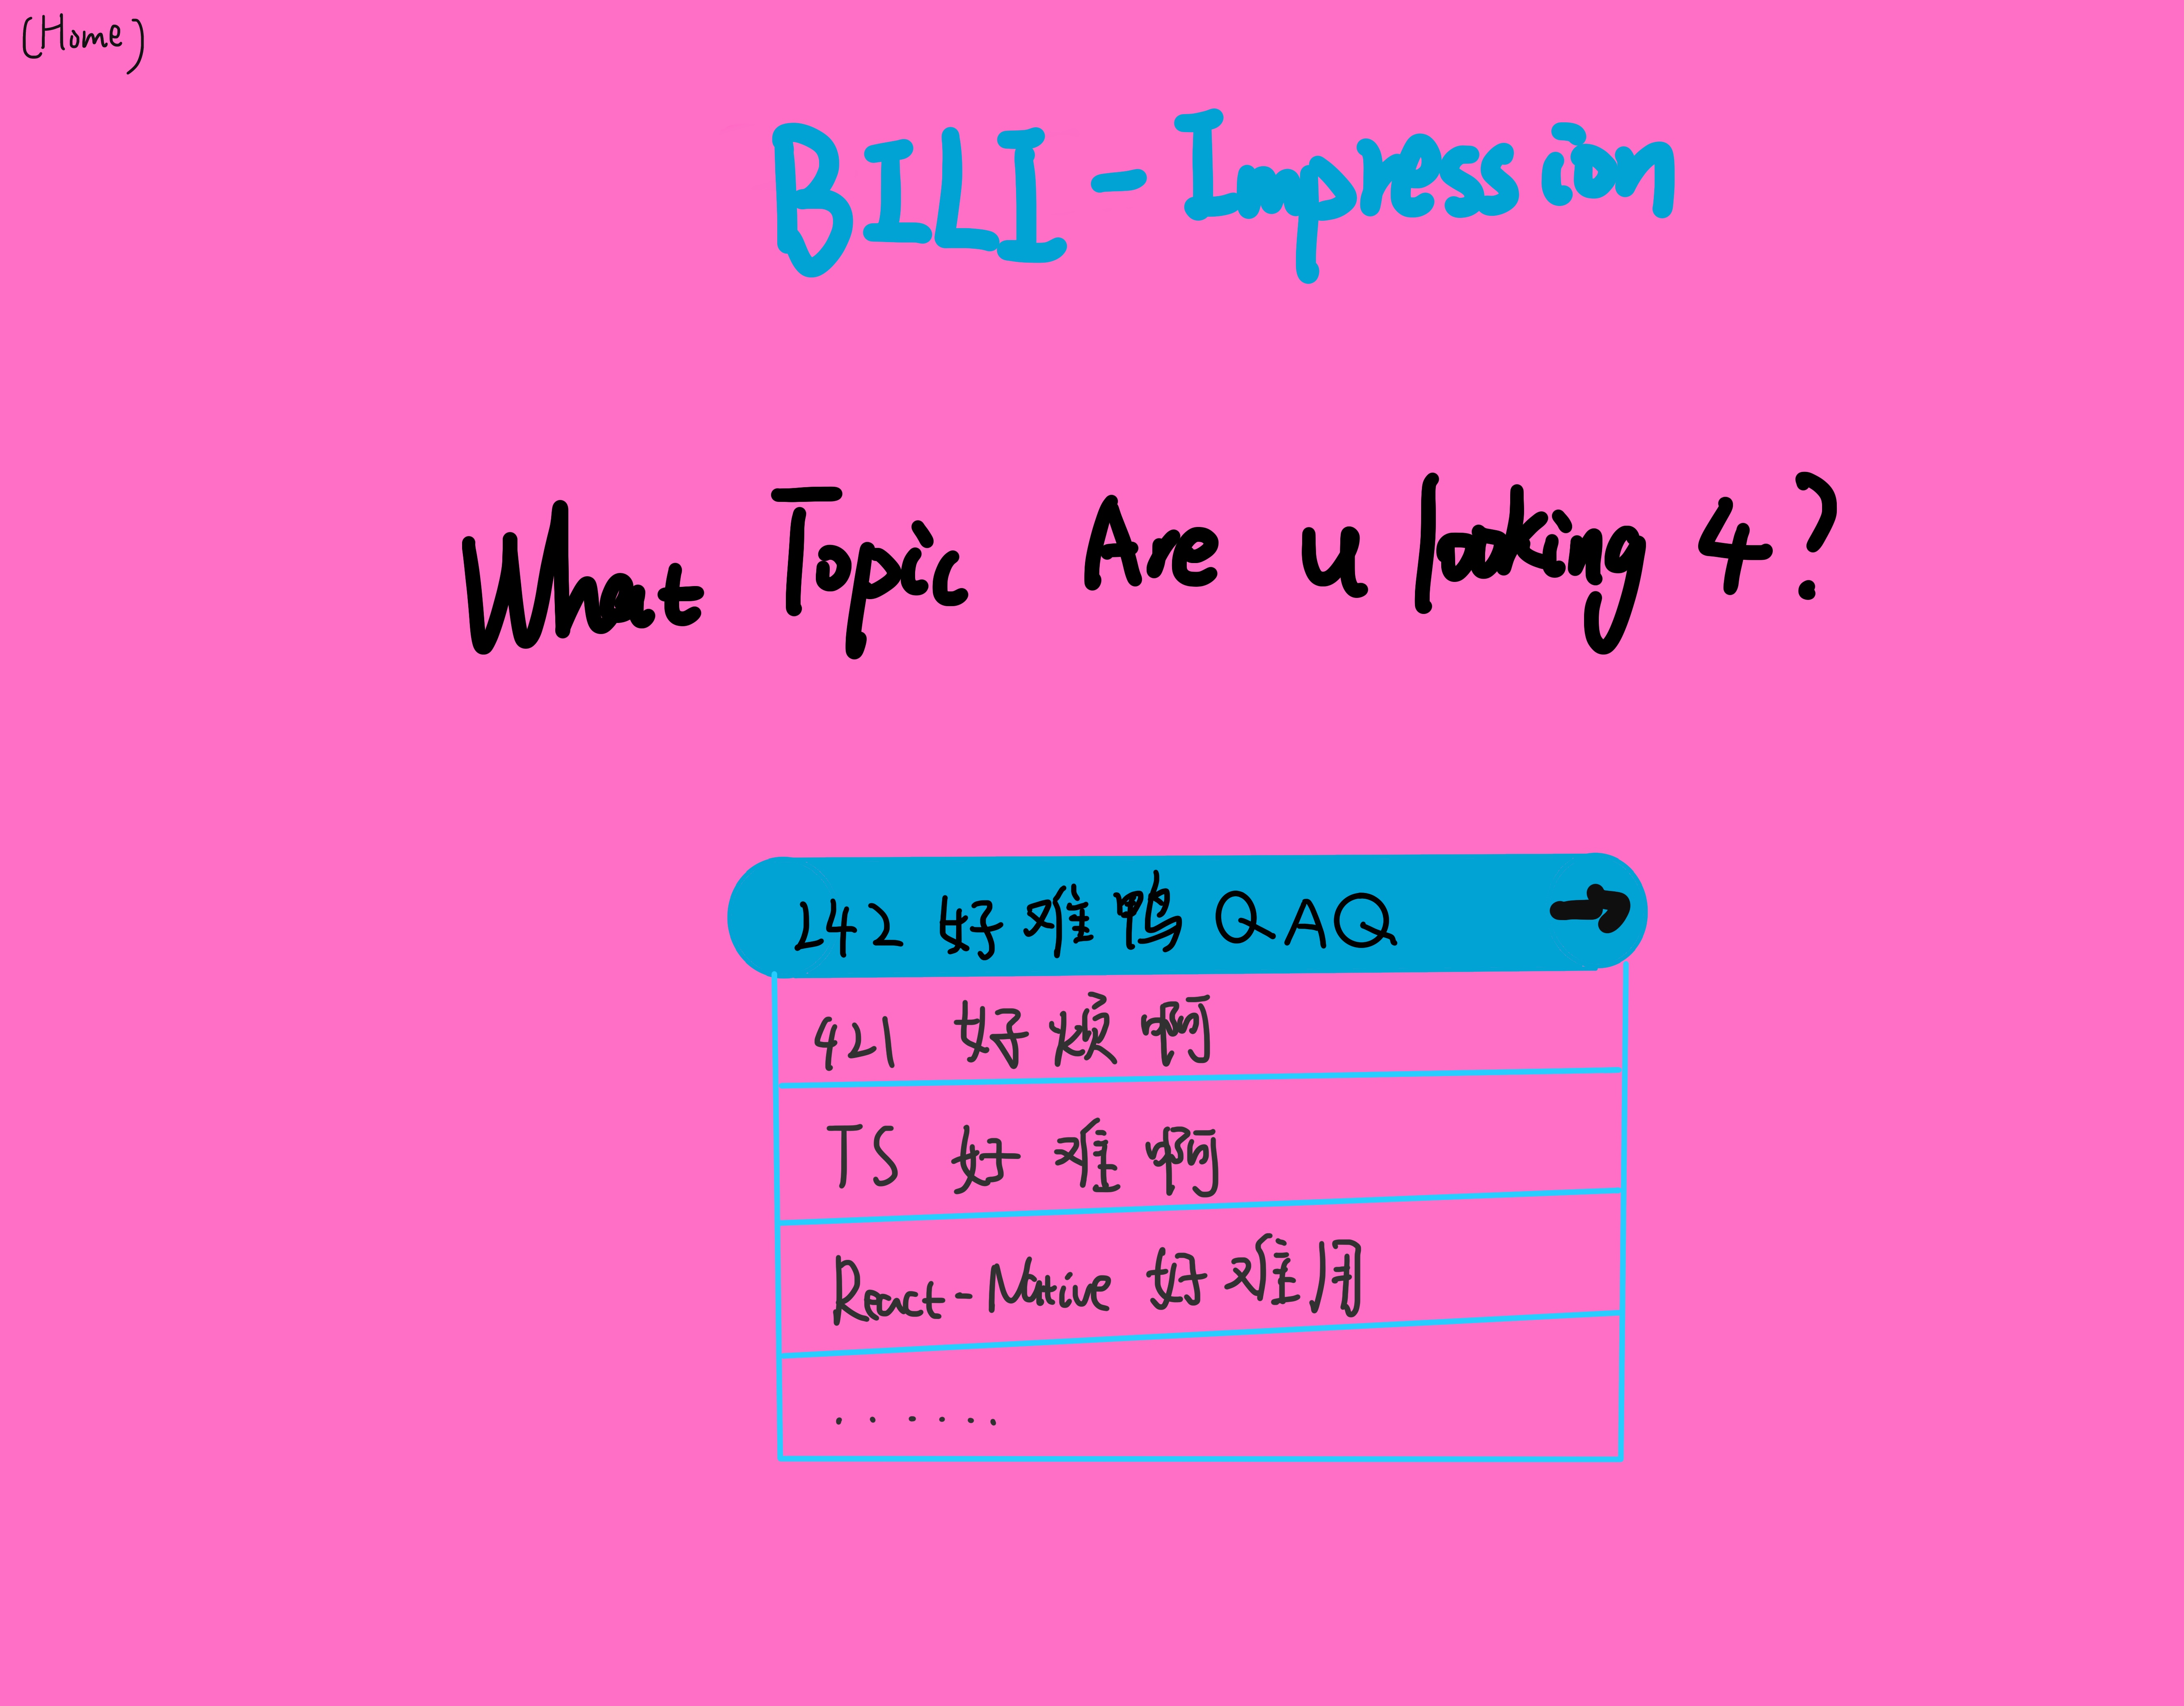 (Home)
BILI-Impression
What Topic Are u looking 4?
242 好难鸭 QAQ
421 好烦啊
TS 好难啊
React-Native 好难用
......